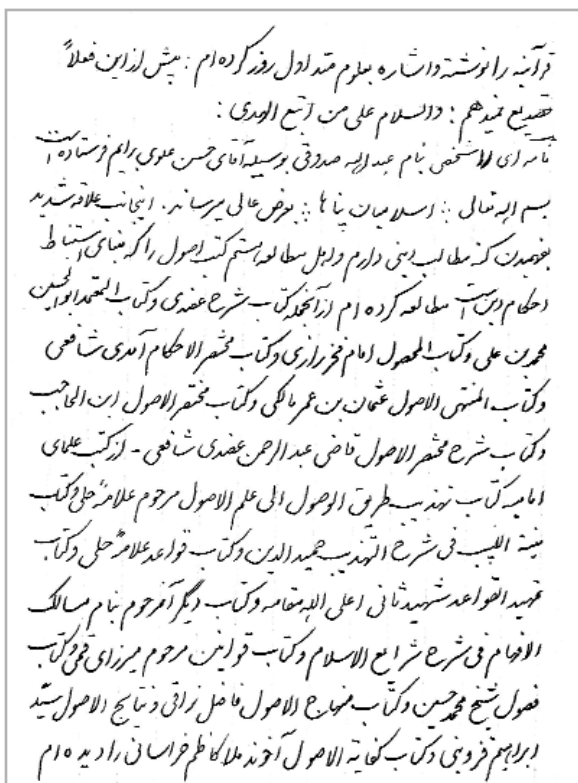 قرآنیه را نوشته و اشاره بعلوم متداول روز کرده ام : بیش از این فعلاً
تصدیع نمیدهم : والسلام علی من اتبع الهدی :
نامه ای از شخصی بنام عبداله صدوقی بوسیله آقای حسن علوی برایم فرستاده است
بسم اله تعالی :: اسلامیان پناها :: بعرض عالی میرساند . اینجانب علاقه شدید
بفهمیدن کنه مطالب دینی دارم و اهل مطالعه هستم کتب اصول را که مبنای استنباط
احکام دین است مطالعه کرده ام از آنجمله کتاب شرح عضدی و کتاب المعتمد ابوالحسین
محمد بن علی و کتاب المحصول امام فخر رازی و کتاب مختصر الاحکام آمدی شافعی
و کتاب المنتهی الاصول عثمان بن عمر مالکی و کتاب مختصر الاصول ابن الحاجب
و کتاب شرح مختصر الاصول قاضی عبد الرحمن عضدی شافعی - از کتب علمای
امامیه کتاب تهذیب طریق الوصول الی علم الاصول مرحوم علامه حلی و کتاب
منیة اللبیب فی شرح التهذیب حمید الدین و کتاب قواعد علامه حلی و کتاب
تمهید القواعد شهید ثانی اعلی الله مقامه و کتاب دیگر آنمرحوم بنام مسالک
الافهام فی شرح شرایع الاسلام و کتاب قوانین مرحوم میرزای قمی و کتاب
فصول شیخ محمد حسین و کتاب منهاج الاصول فاضل نراقی و نتایج الاصول سید
ابراهیم قزوینی و کتاب کفایة الاصول آخوند ملا کاظم خراسانی را دیده ام